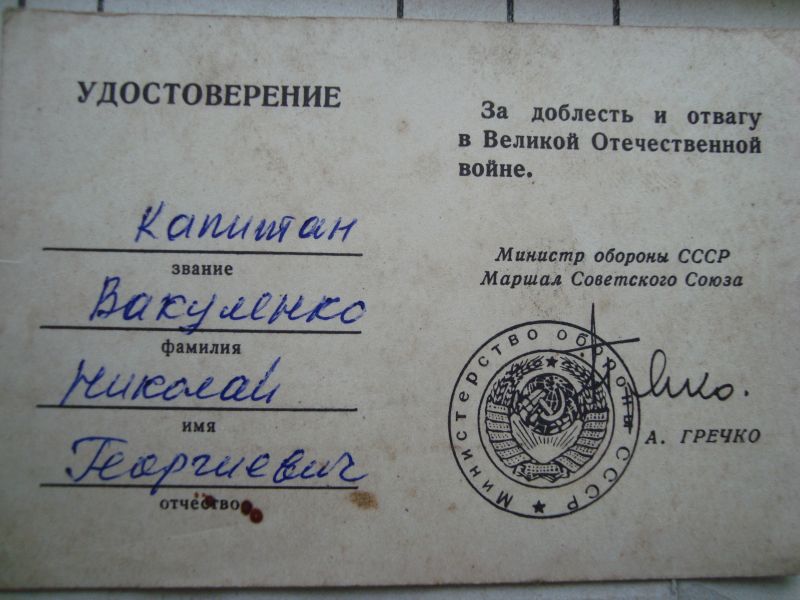 УДОСТОВЕРЕНИЕ
Капитан
звание
Вакуленко
фамилия
Николай
имя
Георгиевич
отчество
За доблесть и отвагу
в Великой Отечественной
войне.
Министр обороны СССР
Маршал Советского Союза
Министерство обороны СССР
А. ГРЕЧКО